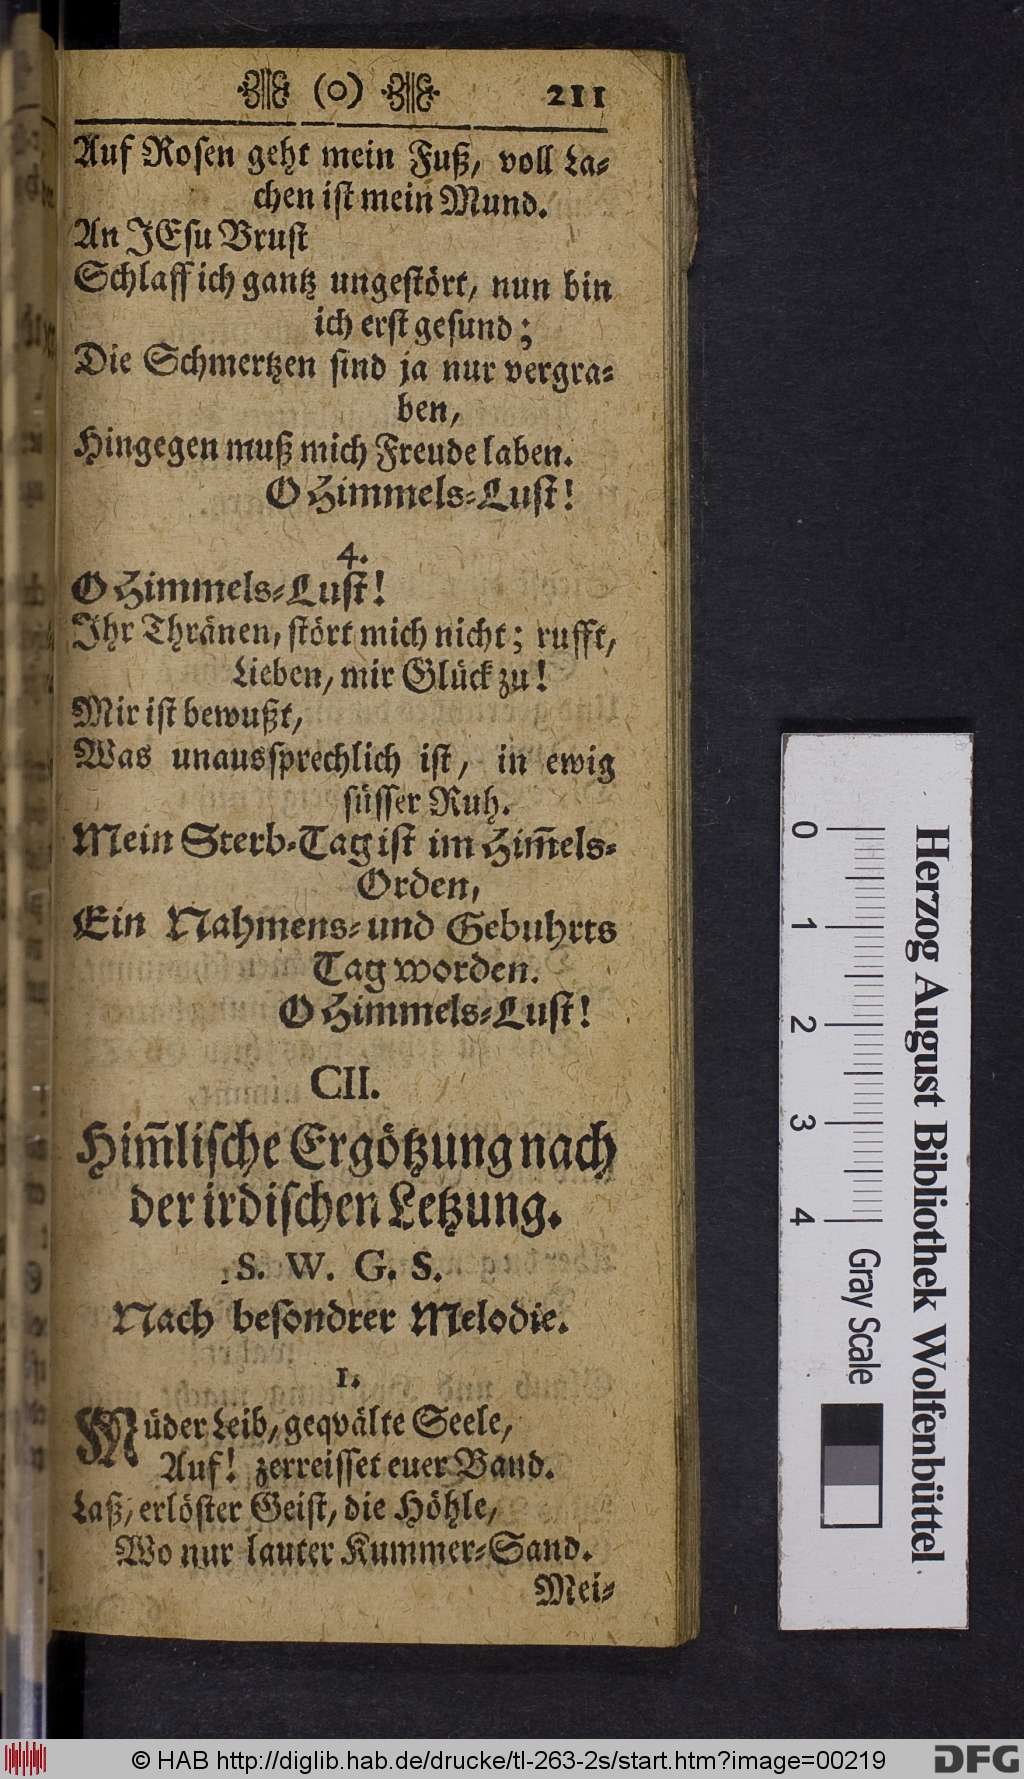 (o) 211
Auf Rosen geht mein Fuß, voll La-
chen ist mein Mund.
An JEsu Brust
Schlaff ich gantz ungestört, nun bin
ich erst gesund;
Die Schmertzen sind ja nur vergra-
ben,
Hingegen muß mich Freude laben.
O Himmels-Lust!
4.
O Himmels-Lust!
Ihr Thränen, stört mich nicht; rufft,
Lieben, mir Glück zu!
Mir ist bewußt,
Was unaussprechlich ist, in ewig
süsser Ruh.
Mein Sterb-Tag ist im Him̄els-
Orden,
Ein Nahmens- und Gebuhrts
Tag worden.
O Himmels-Lust!
CII.
Him̄lische Ergötzung nach
der irdischen Letzung.
S. W. G. S.
Nach besondrer Melodie.
1.
Müder Leib, geqvälte Seele,
Auf! zerreisset euer Band.
Laß, erlöster Geist, die Höhle,
Wo nur lauter Kummer-Sand.
Mei-
Herzog August Bibliothek Wolfenbüttel
0 1 2 3 4 Gray Scale
© HAB http://diglib.hab.de/drucke/tl-263-2s/start.htm?image=00219
DFG